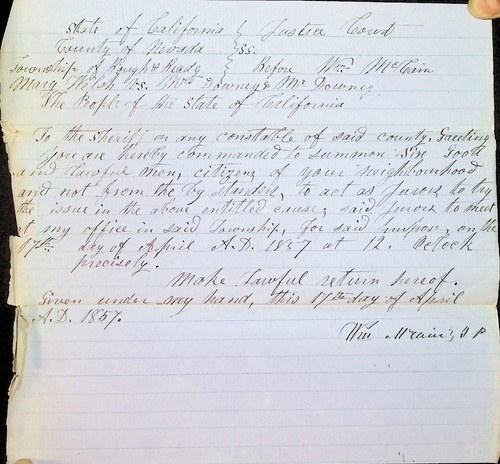 State of California } Justice Court
County of Nevada } ss.
Township of Rough & Ready } Before Wm McCain
Mary Welsh vs. Downey & Mr Downey
The People of the State of California
To the Sheriff or any constable of said county, Greeting
You are hereby commanded to summon Six Good
and lawful men, citizens of your neighbourhood
and not from the by standers, to act as Jurors to try
the issue in the above entitled cause, said jurors to meet
at my office in said Township, for said purpose, on the
17th day of April A.D. 1857 at 12. Oclock
precisely.
Make Lawful return hereof.
Given under my hand, this 17th day of April
A.D. 1857.
Wm McCain, J P